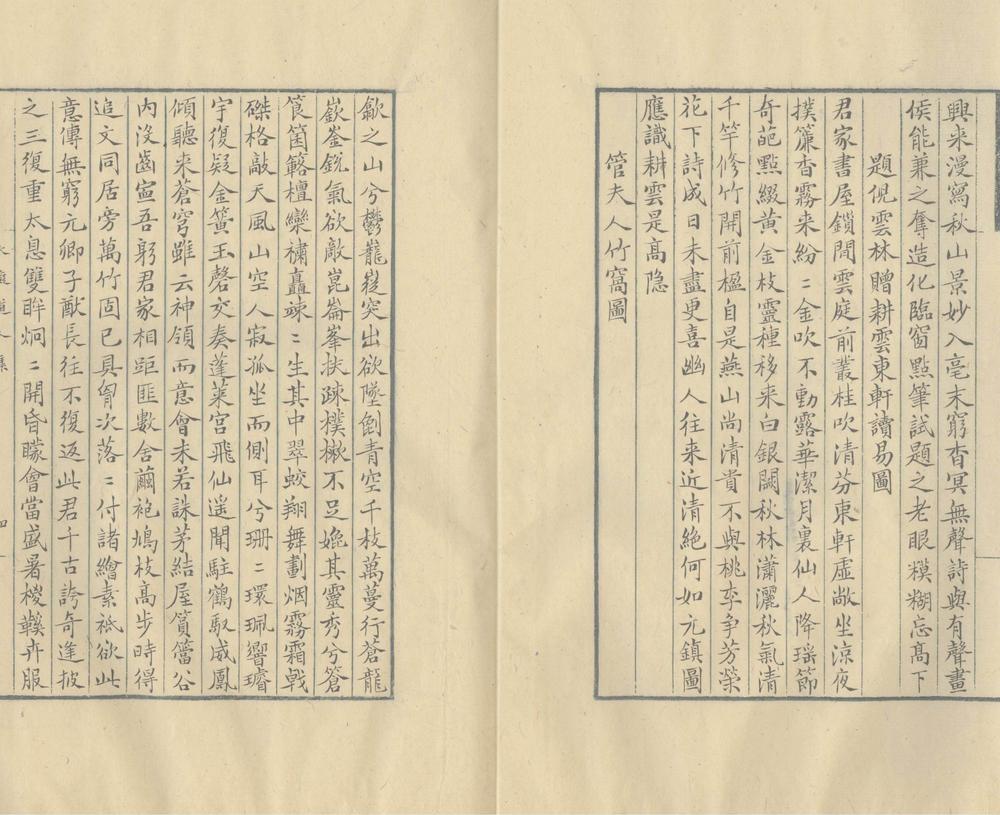 興来漫寫秋山景妙入毫末窮杳冥無聲詩與有聲畫
侯能兼之奪造化臨窗點筆試題之老眼糢糊忘高下
題倪雲林贈耕雲東軒讀易圖
君家書屋鎖閒雲庭前叢桂吹清芬東軒虛敞坐凉夜
撲簾香霧来紛〻金吹不動露華潔月裏仙人降瑶節
奇葩㸃綴黄金枝靈種移来白銀闕秋林瀟灑秋氣清
千竿修竹開前楹自是燕山尚清貴不與桃李争芳榮
花下詩成日未盡更喜幽人往来近清絶何如元鎮圖
應識耕雲是高隐
管夫人竹窩圖
歙之山兮鬱巃嵸突出欲墜倒青空千枝萬蔓行蒼龍
嶔崟銳氣欲敵崑崙峯扶疎樸樕不足媲其靈秀兮篬
筤箘簵檀欒䎘矗竦〻生其中翠蛟翔舞劃烟霧霜戟
磔格敲天風山空人寂孤坐而側耳兮珊〻環珮響璿
宇復疑金簧玉磬交奏蓬萊宫飛仙遥聞駐鶴馭威鳳
傾聽来蒼穹雖云神領而意會未若誅茅結屋篔簹谷
内沒齒寘吾躬君家相距匪數舍繭袍鳩枝高步時得
追文同居旁萬竹固已具胷次落〻付諸繪素祗欲此
意傳無窮元卿子猷長往不復返此君千古誇奇逢披
之三復重太息雙眸炯〻開昏矇會當盛暑椶鞵卉服